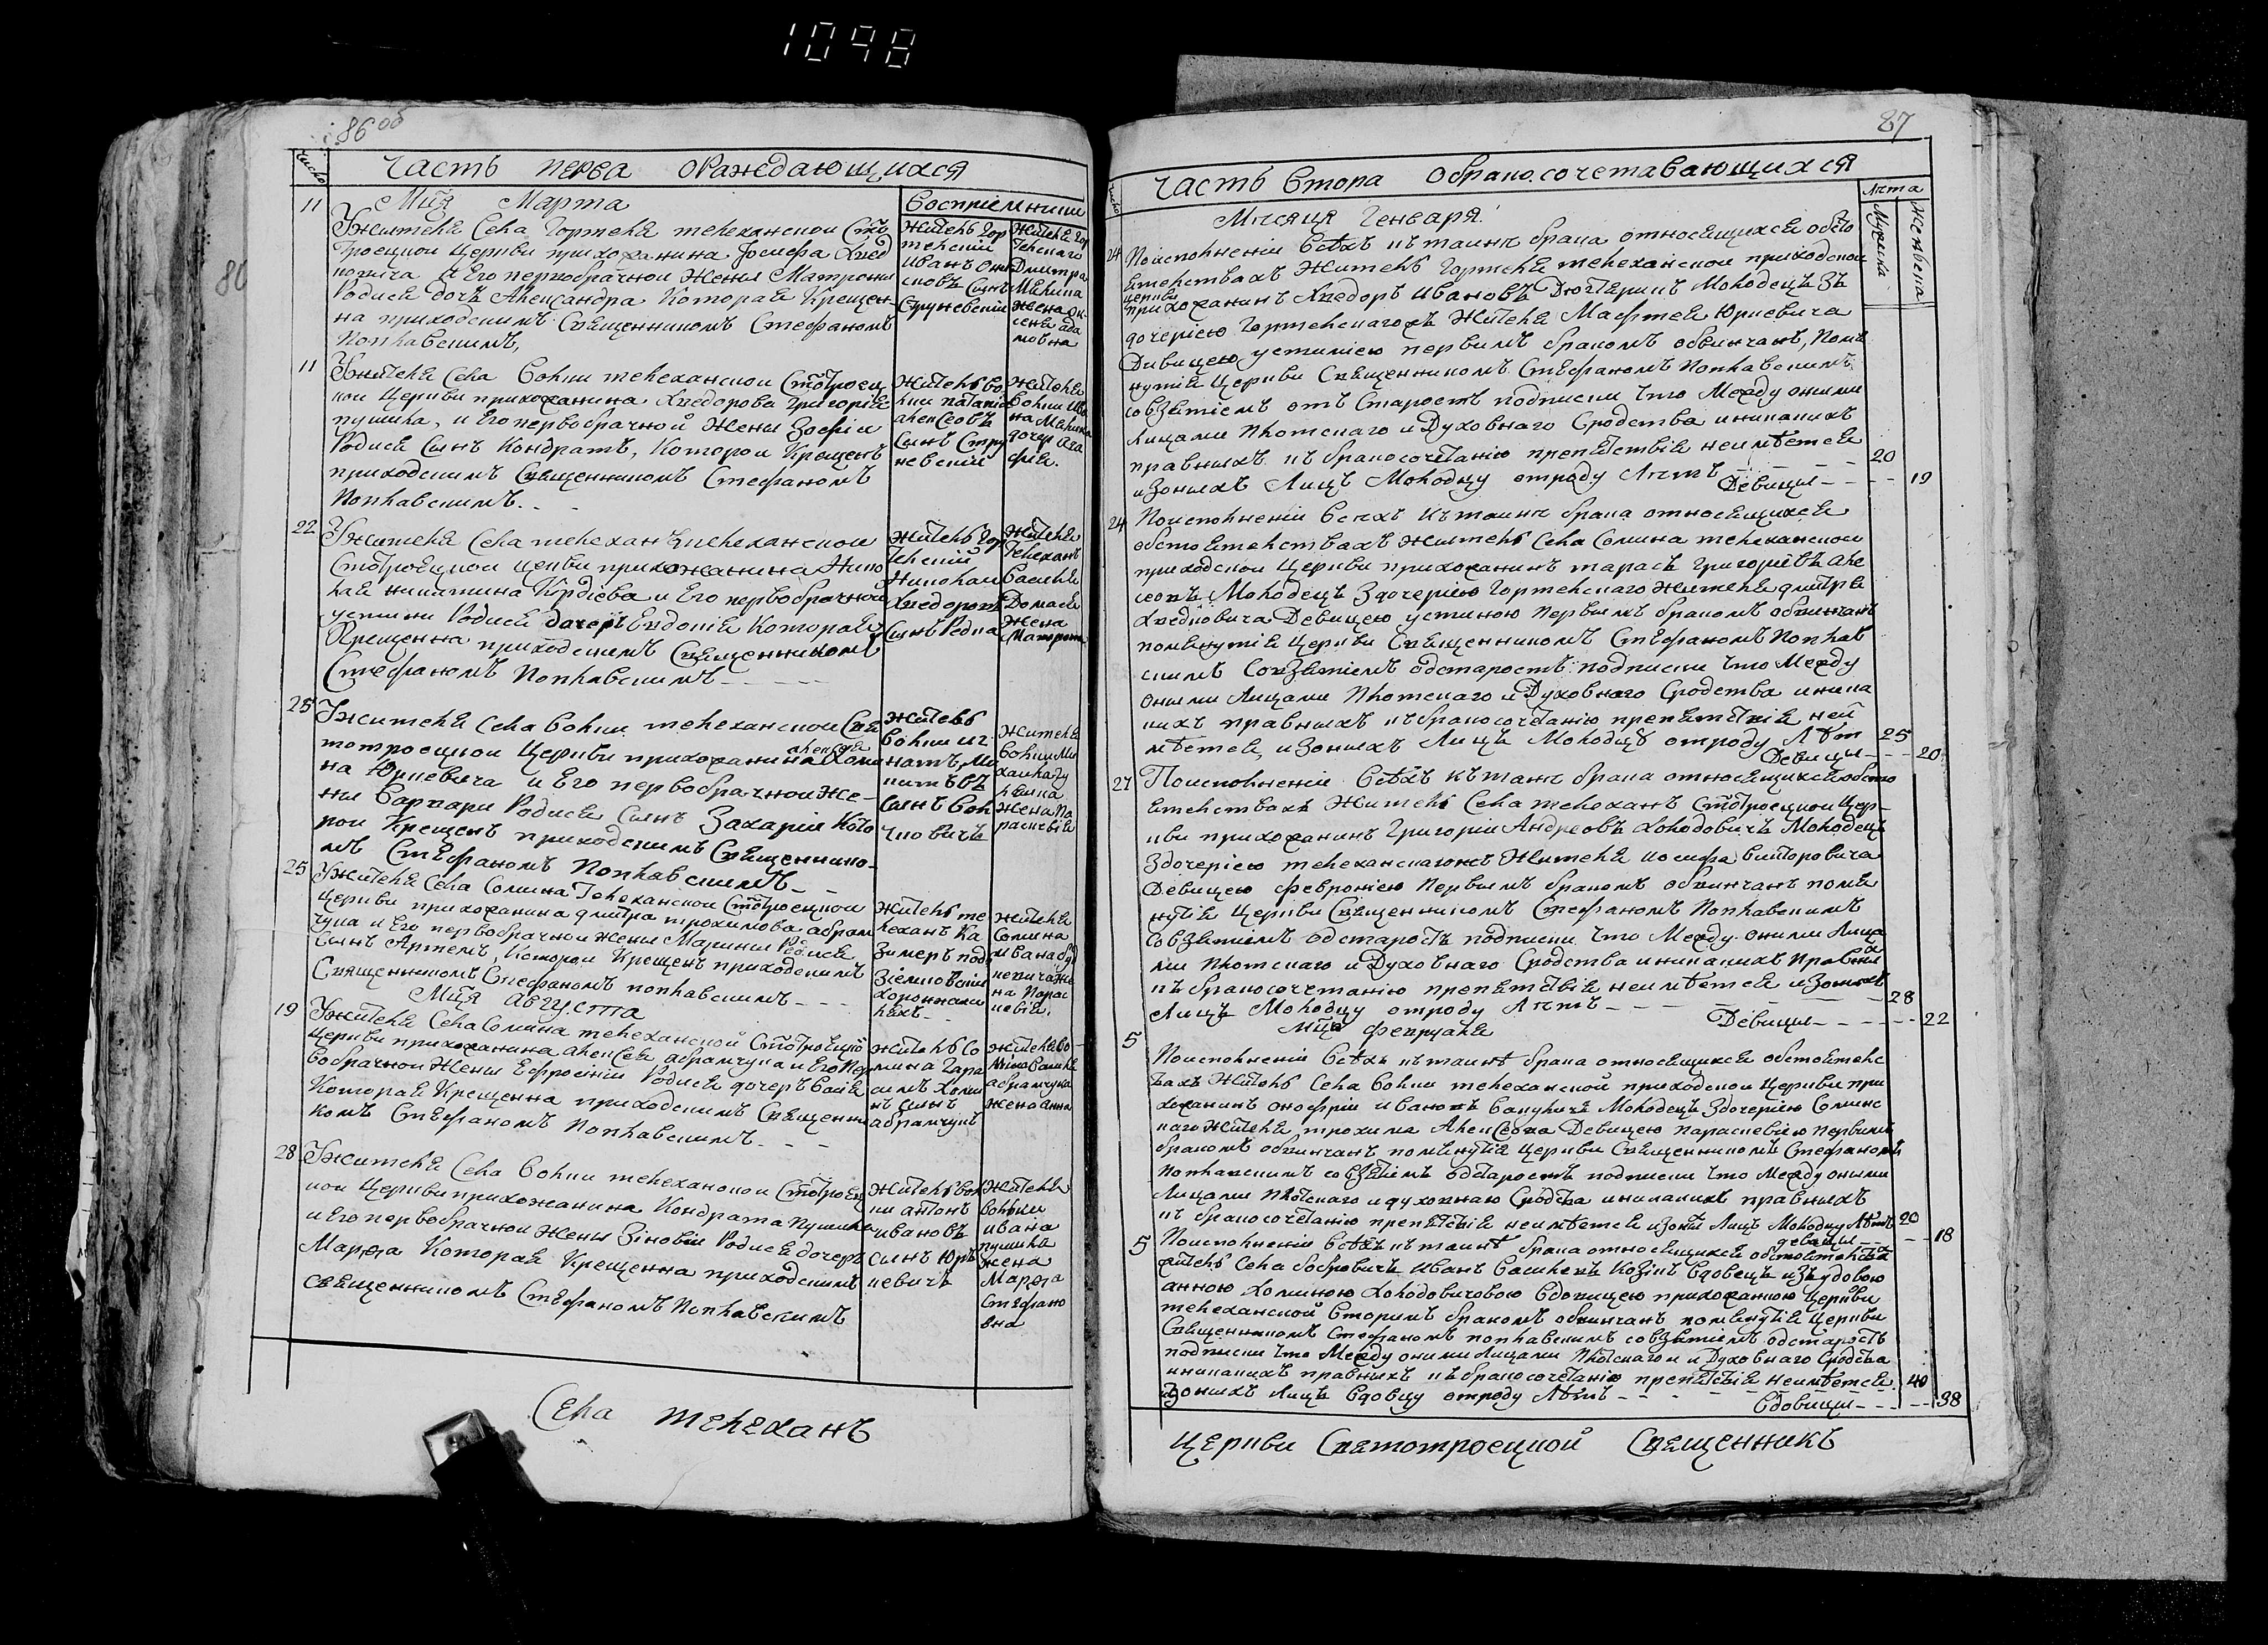 1098
86 об
число
Часть перва оРаждающихся
11
Мця Марта
Воспріемники
Ужителя Села Гортеля телеханской Сто
Троецкой Церкви прихожанина Іосифа Хвед
ковича и Его первобрачной Жены Матроны
Родися дочъ Александра Которая Крещен
на приходскимъ Священникомъ Стефаномъ
Поплавскимъ,
Житель Гор
тельский
Иванъ
совъ Сынъ
Струневский
Жителя Гор
тельскаго
Дмитра
Микиша
жена
сеня ада
мовна
11
Ужителя Села Волки телеханской Стотроец
кой Церкви прихожанина Хведорова Григорія
пушика, и Его первобрачной Жены Зофіи
Родися Сынъ Кондратъ, Которои Крещенъ
приходскимъ Священникомъ Стефаномъ
Поплавскимъ.
Житель Во
лки
алексеовъ
Сынъ Стру
невский
Жителя
Волки Ива
на Микиша
дочер Ага
фия.
22
Ужителя Села телеханъ телеханской
Стотроецкой Церкви прихожанина Нико
лая никитина Кордіева и Его первобрачной
устини Родися дочеръ Евдокія Которая
Крещенна приходскимъ Священникомъ
Стефаномъ Поплавскимъ
Житель Гор
тельский
Николай
Хведоровъ
Сынъ Редка
Жителя
Телеханъ
Василя
Домася
Жена
25
Ужителя Села Волки телеханской Свя
тотроецкой Церкви прихожанина Хоми
алексея
на Юркевича и Его первобрачной Же-
ни Варвари Родися Сынъ Захарій Кото
рои Крещенъ приходскимъ Священнико-
мъ Стефаномъ Поплавскимъ
Житель
Волки иг
натъ Ми
китовъ
Сынъ Вол
човичъ
Жителя
Волки Ми
хаила
Жена Па
раскевія
25
Ужителя Села Сомина Телеханской Стотроецкой
Церкви прихожанина дмитра трохимова абрам
чука и Его первобрачной жены Марины Родися
Сынъ Артемъ, Которои Крещенъ приходскимъ
Священникомъ Стефаномъ поплавскимъ
Житель те
леханъ Ка
зимеръ под
зіемковский
Жителя
Сомина
ивана
жена
на Парас
кевія.
Мця августа
19
Ужителя Села Сомина телеханской Стотроецкой
Церкви прихожанина алексея абрамчука и Его пер
вобрачной Жены Ефросініи Родися дочеръ
Которая Крещенна приходскимъ Священни
комъ Стефаномъ Поплавскимъ
Житель Со
мина Гара
симъ Хоми
нъ сынъ
абрамчукъ
жителя Со-
мина Василя
абрамчука
жена анна
28
Ужителя Села Волки телеханской Стотроец
кой Церкви прихожанина Кондрата Пушика
и Его первобрачной Жены Зіновіи Родися дочеръ
Марфа Которая Крещенна приходскимъ
священникомъ Стефаномъ Поплавскимъ
Житель Вол
ки антонъ
ивановъ
сынъ Юръ
кевичъ
Жителя
Волки
ивана
пушика
жена
Марфа
Стефано
вна
Села телеханъ
87
число
Часть втора обрако.сочетавающихся
Лета
Мужеска
Женъска
Месяця Генваря:
24
Поисполненіи Всѣхъ къ таинъ брака относящихся обсто
ятельствахъ Житель Гортеля телеханской приходской
церкви
прихожанинъ Хведоръ Ивановъ Молодецъ Зъ
дочеріею Гортельскагожъ Жителя Мафтея Юркевича
Дивицею устиніею первимъ бракомъ обвинчанъ, Помя
нутія Церкви Священникомъ Стефаномъ Поплавскимъ
совзятіемъ отъ Старостъ подписки что Между оними
Лицами Плотскаго и Духовнаго Сродства иникакихъ
правныхъ къ бракосочетанію препятствія неимѣется
изоныхъ Лицъ Молодцу отроду Летъ 20
Девици 19
24
Поисполненіи Всехъ къ таинъ брака относящихся
обстоятельствахъ житель Села Сомина телеханской
приходской Церкви прихожанинъ тарасъ Григоріевъ але
сеовъ Молодецъ Здочеріею Гортельскаго Жителя дмитрія
Хведковича Девицею устиною первимъ бракомъ обвинчанъ
помянутія Церкви Священникомъ Стефаномъ Поплав
скимъ Совзятіемъ одстаростъ подписки что Между
оними Лицами Плотскаго и Духовнаго Сродства иника
кихъ правныхъ къ бракосочетанію препятствія неи
мѣется, изоныхъ Лицъ Молодцу отроду Лѣт 25
Девици 20
27
Поисполненіи Всѣхъ къ таинъ брака относящихся обсто
ятельствахъ Житель Села телеханъ Стотроецкой Цер-
кви прихожанинъ Григорій Андреовъ Холодовичъ Молодецъ
Здочеріею телеханскагожъ Жителя иосифа викторовича
Девицею февроніею Первимъ бракомъ обвинчанъ помя
нутія Церкви Священникомъ Стефаномъ Поплавскимъ
Совзятіемъ одстаростъ подписки что Между оними Лица
ми Плотскаго и Духовнаго Сродства иникакихъ Правных
къ бракосочетанію препятствія неимѣется изоныхъ
Лицъ Молодцу отроду Летъ 28
Девици 22
Мця февруаля
5
Поисполненіи Всѣхъ къ таинѣ брака относящихся обстоятелс
твахъ Житель Села Волки телеханской приходской Церкви при
хожанинъ онофрій ивановъ Молодецъ Здочеріею Соминс
каго Жителя трохима Алексеока Девицею параскевіею первимъ
бракомъ обвинчанъ помянутія Церкви Священникомъ Стефаномъ
Поплавскимъ совзятіемъ одстаростъ подписки что Между оними
Лицами Плотскаго и духовнаго Сродства иникакихъ правныхъ
къ бракосочетанію препятствія неимѣется изоных Лицъ Молодцу Лѣтъ 20
девици 18
5
Поисполненіи Всѣхъ къ таинѣ брака относящихся обстоятельствах
житель Села бобровичъ Иванъ Василевъ Козікъ Вдовецъ изъ удовою
анною Хоминою Холодовичовою Вдовицею прихожаною Церкви
телеханской вторимъ бракомъ обвинчанъ помянутія Церкви
Священникомъ Стефаномъ поплавскимъ совзятіемъ одстаростъ
подписки что Между оними Лицами Плотскаго и Духовнаго Сродства
иникакихъ правныхъ къ бракосочетанію препятствія неимѣется
изоныхъ Лицъ Вдовцу отроду Лѣтъ 40
Вдовици 38
Церкви Святотроецкой Священникъ